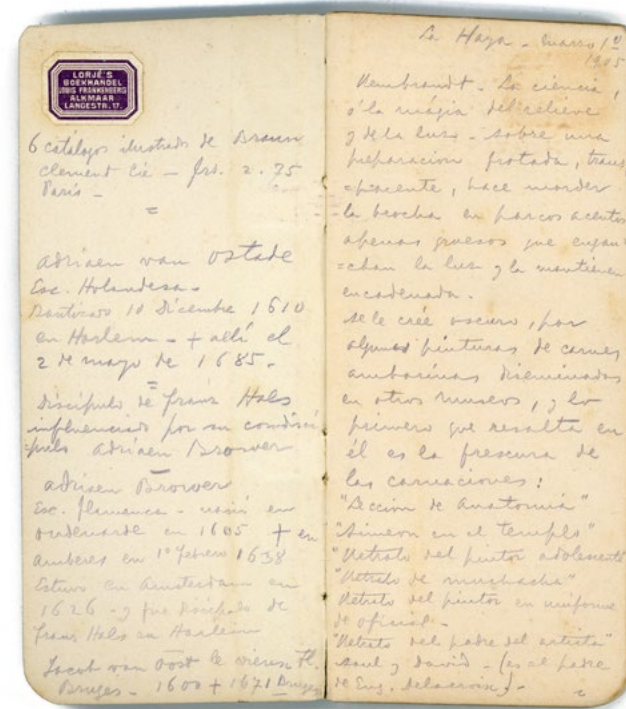 LORJÉ'S
BOEKHANDEL
LOUIS FRANKENBERG
ALKMAAR
LANGESTR. 17.
6 catálogos ilustrados de Braun
Clement Cie — frs. 2.75
Paris —
=
Adriaen van Ostade
Esc. Holandesa —
Bautizado 10 Dicembre 1610
en Harlem — + allí el
2 de mayo de 1685.
=
Discípulo de Franz Hals
influenciado por su condiscí
pulo Adriaen Brower
Adriaen Brower
Esc. flamenca — nació en
oudenarde en 1605 + en
Amberes en 1º febrero 1638
Estuvo en Amsterdam en
1626 — y fue discípulo de
Frans Hals en Harlem
Jacob van Oost le vieux fl.
Bruges — 1600 + 1671 Bruges
La Haya — marzo 1º
1905
Rembrandt. La ciencia,
ó la mágia del relieve
y de la luz — sobre una
preparacion frotada, trans
=parente, hace morder
la brocha en parcos acentos
apenas gruesos que engan
=chan la luz y la mantienen
encadenada.
Se le crée oscuro, por
algunas pinturas de carnes
ambarinas diseminadas
en otros museos, y lo
primero que resalta en
él es la frescura de
las carnaciones:
"Leccion de Anatomia"
"Simeon en el templo"
"Retrato del pintor adolescente"
"Retrato de muchacha"
Retrato del pintor en uniforme
de oficial —
"Retrato del padre del artista"
Saul y David — (es el padre
de Eug. Delacroix) —